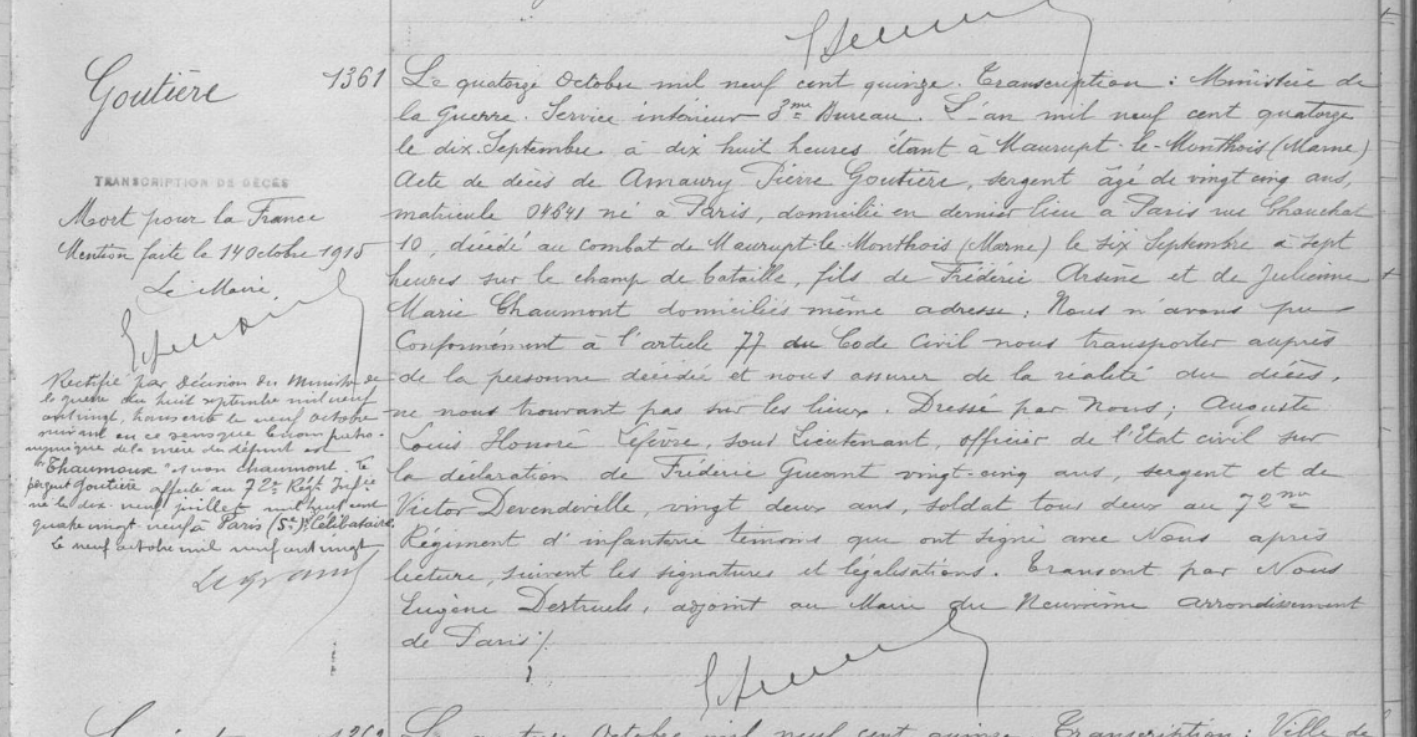 Goutière
1361
TRANSCRIPTION DE DÉCÈS
Mort pour la France
Mention faite le 14 Octobre 1915
Le Maire
Rectifié par décision du Ministre de
la guerre du huit septembre mil neuf
cent vingt, transcrite le neuf octobre
suivant en ce sens que le nom patro-
nymique de la mère du défunt est
"Thaumoux" et non Chaumont. Le
sergent Goutière affecté au 72e Régt Infie
né le dix-neuf juillet mil huit cent
quatre vingt-neuf à Paris (Sne). Célibataire
Le neuf octobre mil neuf cent vingt
Legrand
Le quatorze Octobre mil neuf cent quinze. Transcription : Ministère de
la Guerre. Service intérieur 3me Bureau. L'an mil neuf cent quatorze
le dix Septembre à dix huit heures étant à Maurupt-le-Monthois (Marne)
Acte de décès de Amaury Pierre Goutière, sergent âgé de vingt cinq ans,
matricule 04541 né à Paris, domicilié en dernier lieu à Paris rue Chauchat
10, décédé au combat de Maurupt-le-Monthois (Marne) le six Septembre à sept
heures sur le champ de bataille, fils de Frédéric Arsène et de Julienne
Marie Chaumont domiciliés même adresse ; Nous n'avons pu
Conformément à l'article 77 du Code Civil nous transporter auprès
de la personne décédée et nous assurer de la réalité du décès,
ne nous trouvant pas sur les lieux. Dressé par Nous ; Auguste
Louis Honoré Lefèvre, sous Lieutenant, officier de l'Etat civil sur
la déclaration de Frédéric Gueant vingt-cinq ans, sergent et de
Victor Devendeville, vingt deux ans, soldat tous deux au 72me
Régiment d'infanterie témoins qui ont signé avec Nous après
lecture, suivent les signatures et légalisations. Transcrit par Nous
Eugène Destruels, adjoint au Maire du Neuvième arrondissement
de Paris ./.
1362
Le quatorze Octobre mil neuf cent quinze. Transcription : Ville de